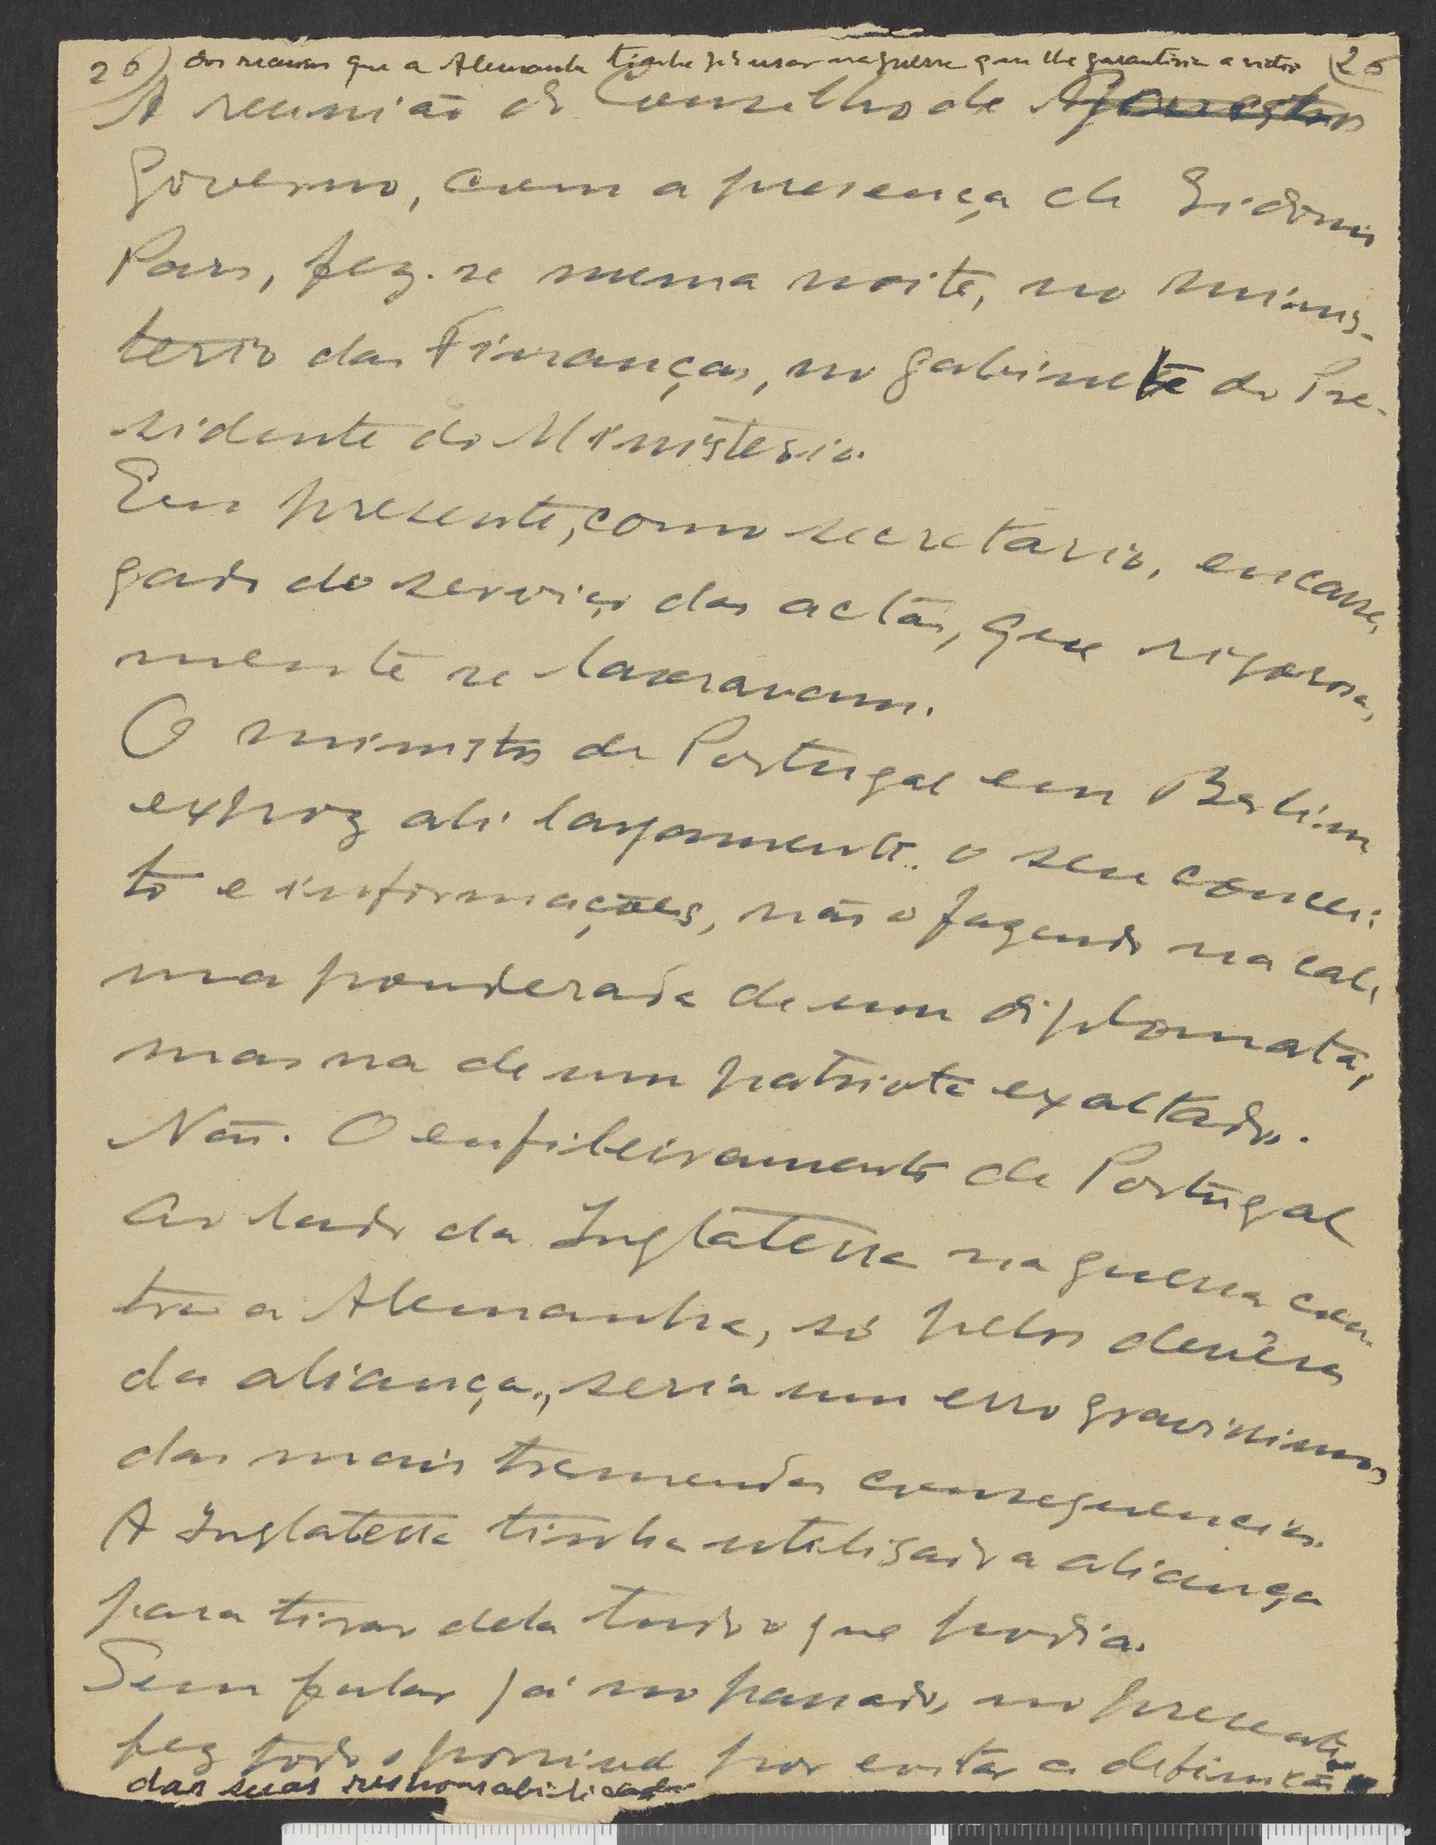 26) dos meios que a Alemanha tinha p.ª usar na guerra que lhe garantiria a vitor (26
A reunião do Conselho de
Governo, com a presença de Sidonio
Pais, fez-se nessa noite, no minis-
terio das Finanças, no gabinete do Pre-
sidente do Ministerio.
Eu presente, como secretário, encarre,
gado do serviço das actas, que rigorosa,
mente se lavravam.
O ministro de Portugal em Berlim
expoz ali largamente o seu concei-
to e informações, não o fazendo na cal,
ma ponderada de um diplomata,
mas na de um patriota exaltado.
Não. O enfileiramento de Portugal
ao lado da Inglaterra na guerra con-
tra a Alemanha, só pelos devêres
da aliança, seria um erro gravissimo,
das mais tremendas consequencias.
A Inglaterra tinha utilisado a aliança
para tirar dela tudo o que podia.
Sem falar já no passado, no presente
fez todo o possivel por evitar a definição
das suas responsabilidades